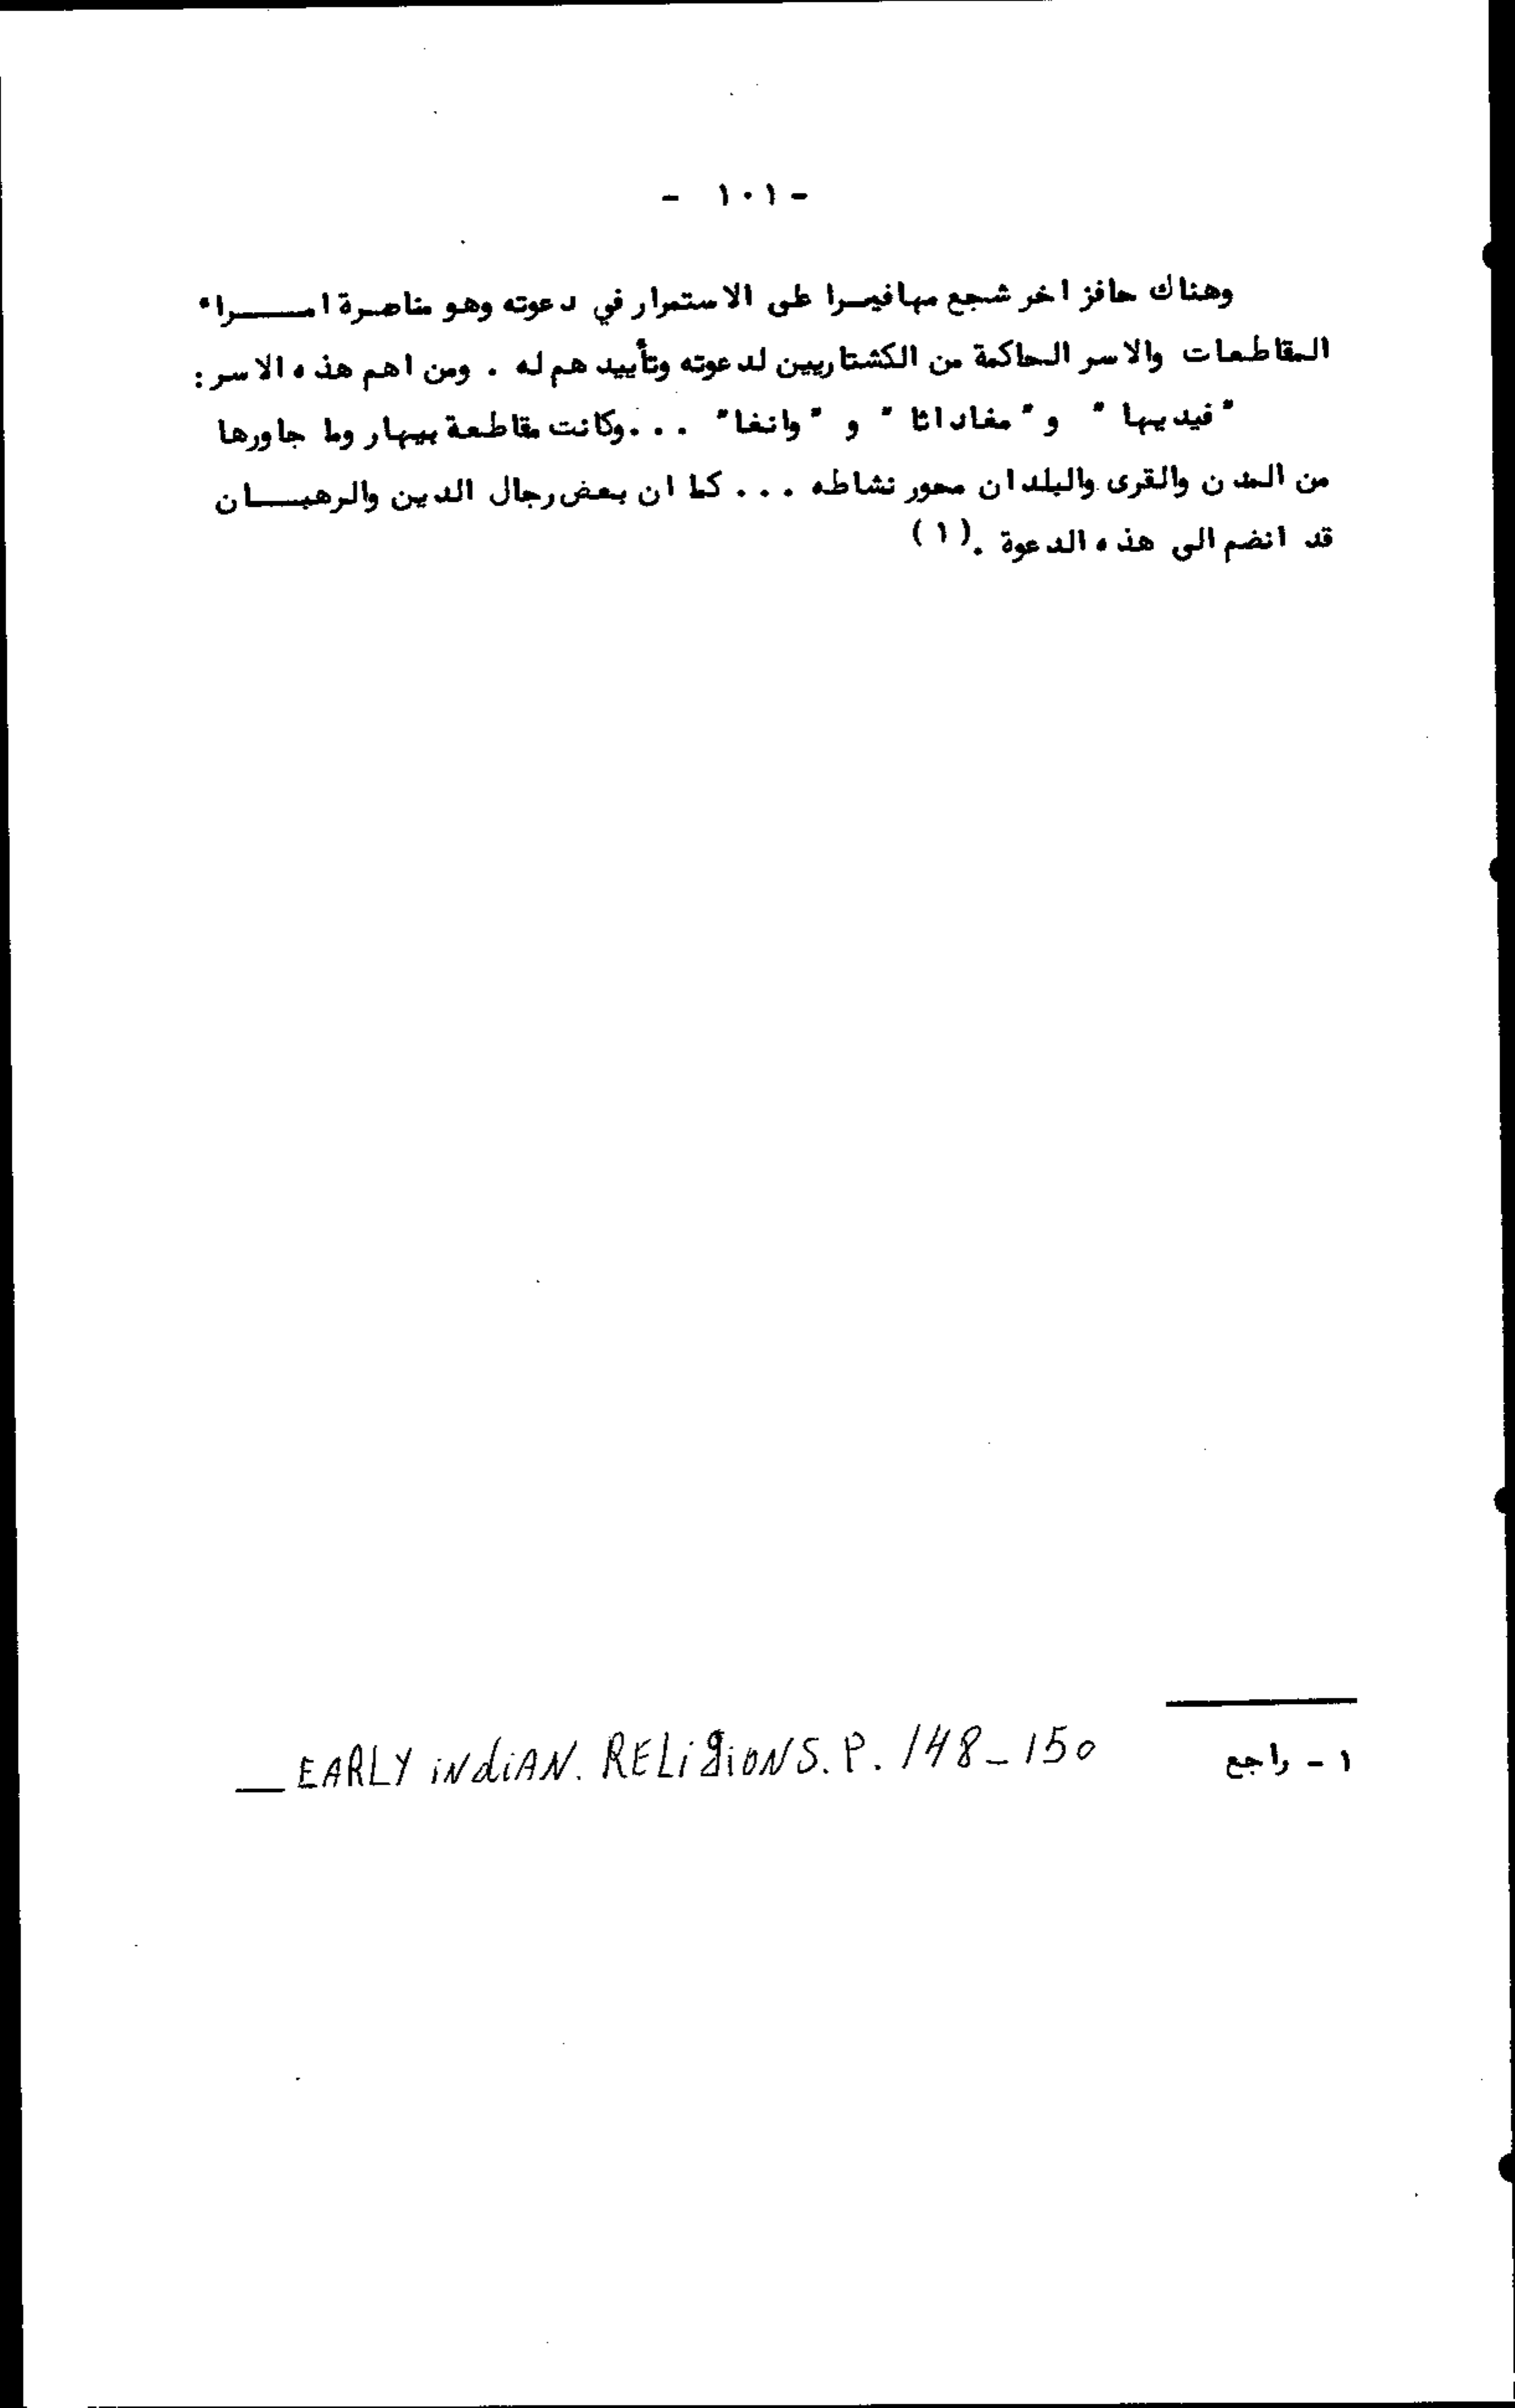 - ١٠١ -
وهناك حافز اخر شجع مهافيرا على الاستمرار في دعوته وهو مناصرة امراء
المقاطعات والاسر الحاكمة من الكشتاريين لدعوته وتأييدهم له . ومن اهم هذه الاسر :
" فيديها " و " مغاداثا " و " وانغا" . . . وكانت مقاطعة بيهار وما جاورها
من المدن والقرى والبلدان محور نشاطه . . . كما ان بعض رجال الدين والرهبان
قد انضم الى هذه الدعوة .(١)
١ - راجع EARLY iNdiAN. RELigiONS. P. 148-150 —